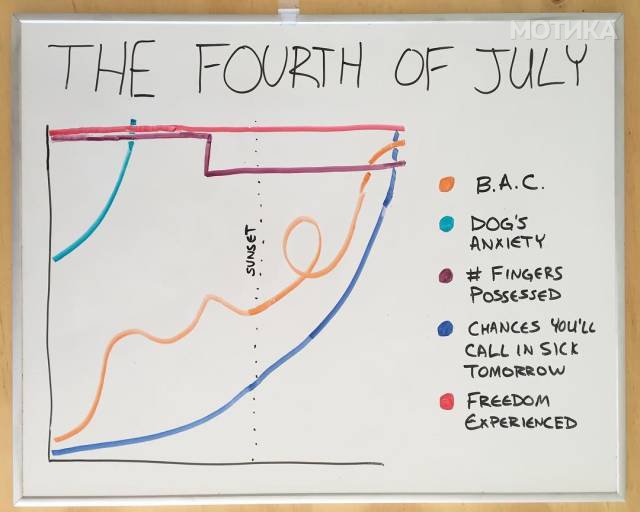 МОТИКА
THE FOURTH OF JULY
B.A.C.
DOG'S
ANXIETY
SUNSET
# FINGERS
POSSESSED
CHANCES YOU'LL
CALL IN SICK
TOMORROW
FREEDOM
EXPERIENCED